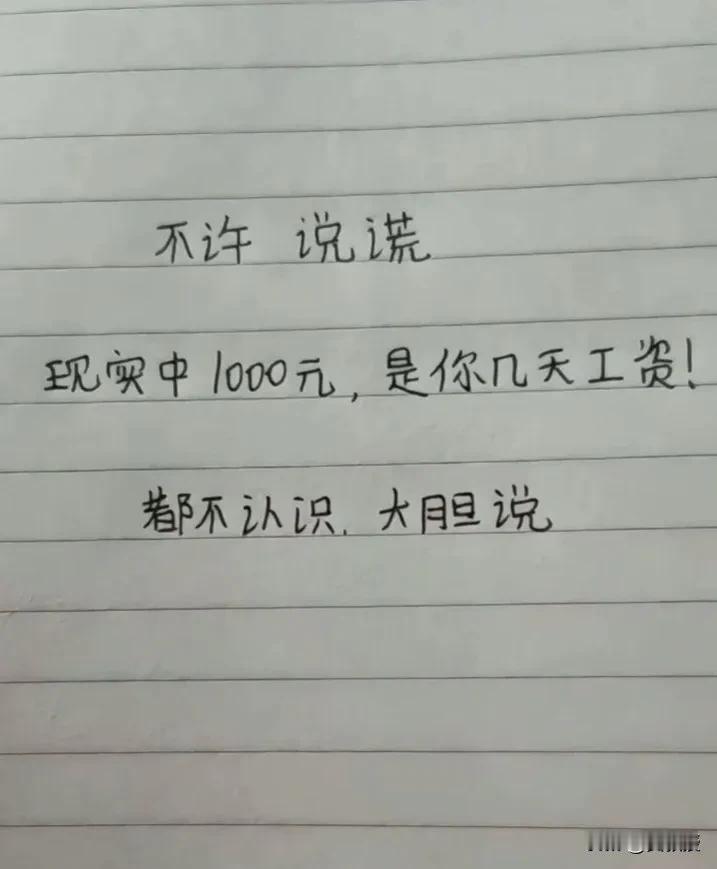 不许 说谎
现实中1000元，是你几天工资！
都不认识．大胆说